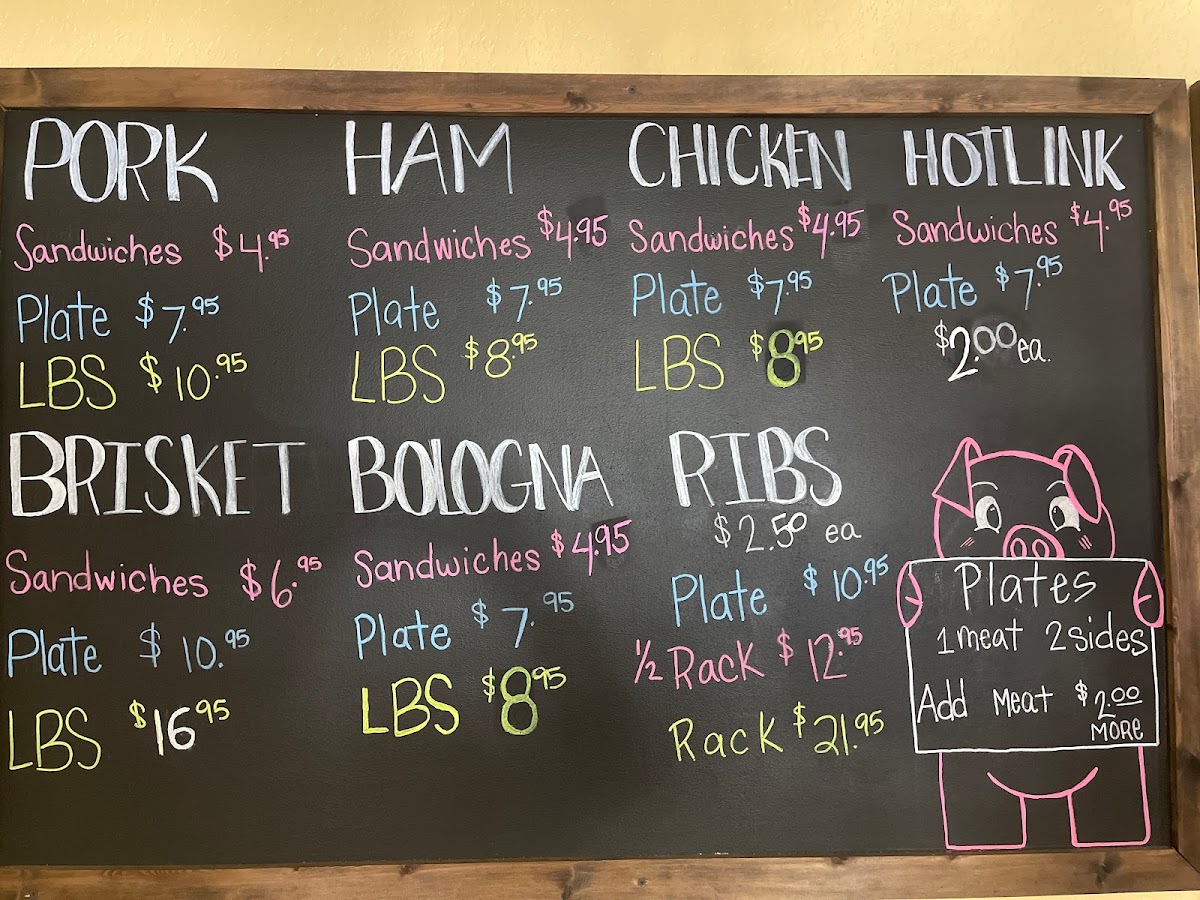 PORK
Sandwiches $4.95
Plate $7.95
LBS $10.95
HAM
Sandwiches $4.95
Plate $7.95
LBS $8.95
CHICKEN
Sandwiches $4.95
Plate $7.95
LBS $8.95
HOTLINK
Sandwiches $4.95
Plate $7.95
$2.00 ea.
BRISKET
Sandwiches $6.95
Plate $10.95
LBS $16.95
BOLOGNA
Sandwiches $4.95
Plate $7.95
LBS $8.95
RIBS
$2.50 ea
Plate $10.95
1/2 Rack $12.95
Rack $21.95
Plates
1 meat 2 sides
Add Meat $2.00
MORE